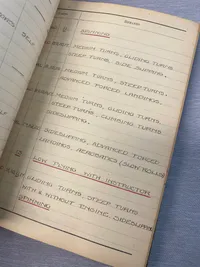 REMARKS
SPINNING
MEDIUM TURNS, GLIDING TURNS
STEEP TURNS, SIDE SLIPPING.
MEDIUM TURNS, STEEP TURNS.
ADVANCED FORCED LANDINGS.
MEDIUM TURNS, GLIDING TURNS
STEEP TURNS - CLIMBING TURNS
SIDESLIPPING.
SIDESLIPPING, ADVANCED FORCED
LANDINGS. AEROBATICS (SLOW ROLLS)
LOW FLYING WITH INSTRUCTOR
GLIDING TURNS, STEEP TURNS
WITH & WITHOUT ENGINE. SIDESLIPPING
SPINNING